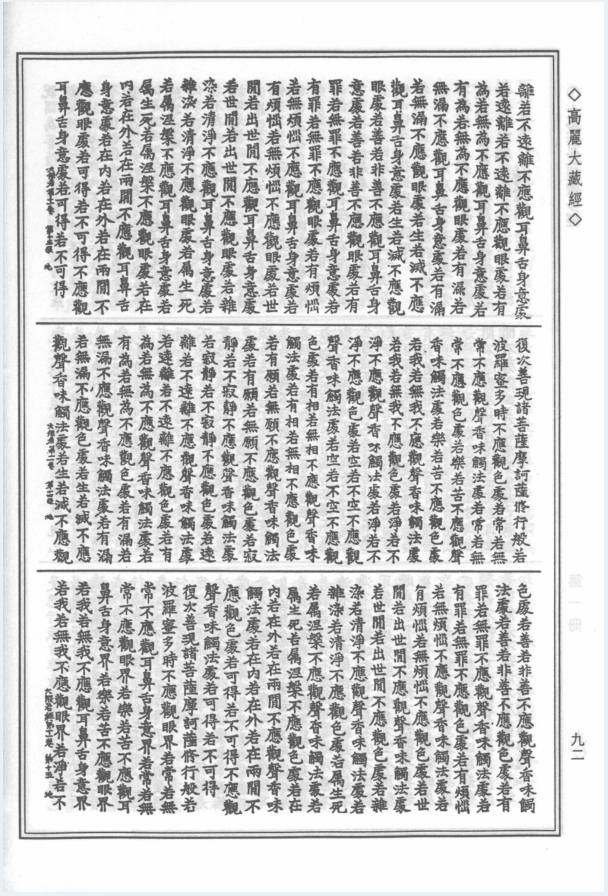 ◇高麗大藏經◇
離若不遠離不應觀耳鼻舌身意處
若遠離若不遠離不應觀眼處若有
為若無為不應觀耳鼻舌身意處若
有為若無為不應觀眼處若有漏若
無漏不應觀耳鼻舌身意處若有漏
若無漏不應觀眼處若生若滅不應
觀耳鼻舌身意處若生若滅不應觀
眼處若善若非善不應觀耳鼻舌身
意處若善若非善不應觀眼處若有
罪若無罪不應觀耳鼻舌身意處若
有罪若無罪不應觀眼處若有煩惱
若無煩惱不應觀耳鼻舌身意處若
有煩惱若無煩惱不應觀眼處若世
間若出世間不應觀耳鼻舌身意處
若世間若出世間不應觀眼處若雜
染若清淨不應觀耳鼻舌身意處若
雜染若清淨不應觀眼處若屬生死
若屬涅槃不應觀耳鼻舌身意處若
屬生死若屬涅槃不應觀眼處若在
內若在外若在兩間不應觀耳鼻舌
身意處若在內若在外若在兩間不
應觀眼處若可得若不可得不應觀
耳鼻舌身意處若可得若不可得
復次善現諸菩薩摩訶薩修行般若
波羅蜜多時不應觀色處若常若無
常不應觀聲香味觸法處若常若無
常不應觀色處若樂若苦不應觀聲
香味觸法處若樂若苦不應觀色處
若我若無我不應觀聲香味觸法處
若我若無我不應觀色處若淨若不
淨不應觀聲香味觸法處若淨若不
淨不應觀色處若空若不空不應觀
聲香味觸法處若空若不空不應觀
色處若有相若無相不應觀聲香味
觸法處若有相若無相不應觀色處
若有願若無願不應觀聲香味觸法
處若有願若無願不應觀色處若寂
靜若不寂靜不應觀聲香味觸法處
若寂靜若不寂靜不應觀色處若遠
離若不遠離不應觀聲香味觸法處
若遠離若不遠離不應觀色處若有
為若無為不應觀聲香味觸法處若
有為若無為不應觀色處若有漏若
無漏不應觀聲香味觸法處若有漏
若無漏不應觀色處若生若滅不應
觀聲香味觸法處若生若滅不應觀
色處若善若非善不應觀聲香味觸
法處若善若非善不應觀色處若有
罪若無罪不應觀聲香味觸法處若
有罪若無罪不應觀色處若有煩惱
若無煩惱不應觀聲香味觸法處若
有煩惱若無煩惱不應觀色處若世
間若出世間不應觀聲香味觸法處
若世間若出世間不應觀色處若雜
染若清淨不應觀聲香味觸法處若
雜染若清淨不應觀色處若屬生死
若屬涅槃不應觀聲香味觸法處若
屬生死若屬涅槃不應觀色處若在
內若在外若在兩間不應觀聲香味
觸法處若在內若在外若在兩間不
應觀色處若可得若不可得不應觀
聲香味觸法處若可得若不可得
復次善現諸菩薩摩訶薩修行般若
波羅蜜多時不應觀眼界若常若無
常不應觀耳鼻舌身意界若常若無
常不應觀眼界若樂若苦不應觀耳
鼻舌身意界若樂若苦不應觀眼界
若我若無我不應觀耳鼻舌身意界
若我若無我不應觀眼界若淨若不
九二